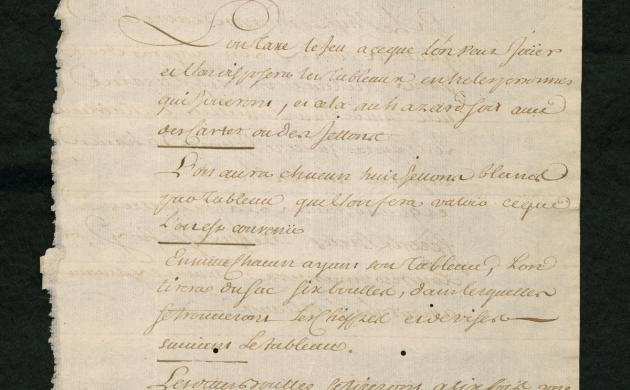 L'on taxe le jeu a ce que l'on veut joüer
et l'on disposera les tableaux entre les personnes
qui joüeront, et cela au hazard soit avec
des Cartes ou des Jettons
L'on aura chacun huit Jettons blancs
par Tableau que l'on fera valoir ce que
l'on est convenu
Ensuite chacun ayant son Tableau, l'on
tirera du sac six boulles, dans lesquelles
se trouveront les Chiffres et devises
suivant le tableau.
boulles se tireront a six fois